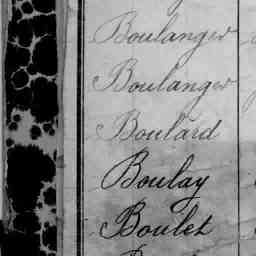 Boulanger
Boulanger
Boulard
Boulay
Boulet